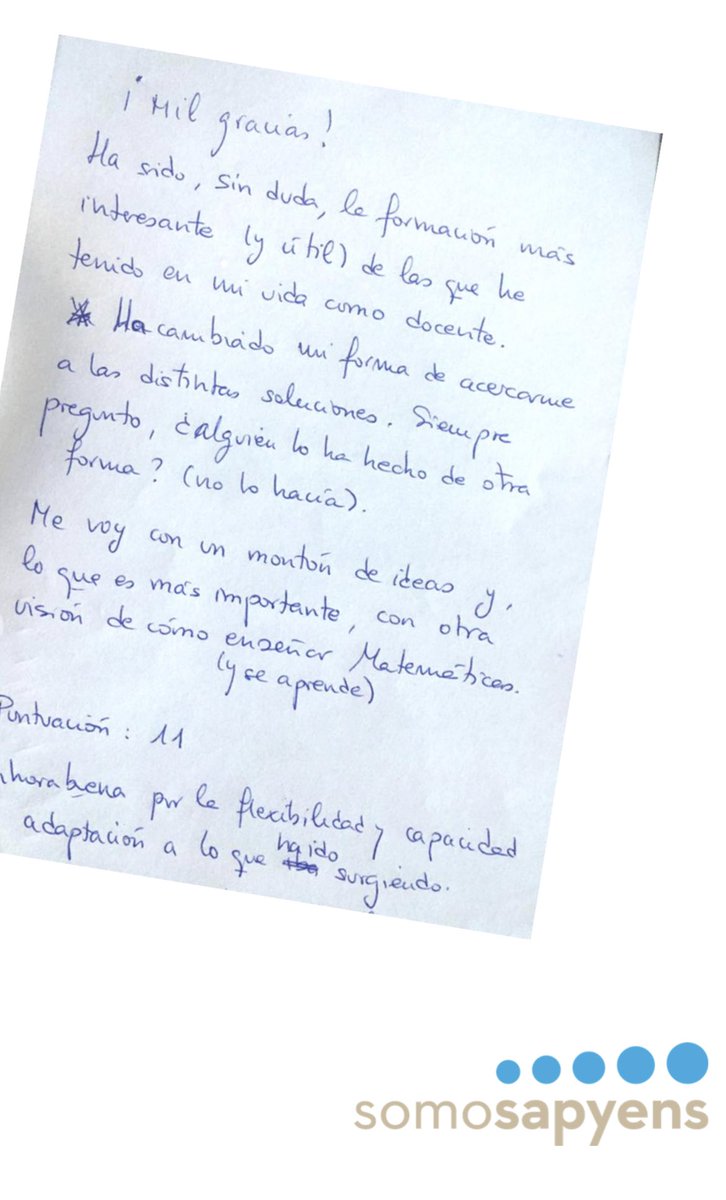 ¡Mil gracias!
Ha sido, sin duda, la formación más
interesante (y útil) de las que he
tenido en mi vida como docente.
Ha cambiado mi forma de acercarme
a las distintas soluciones. Siempre
pregunto, ¿alguién lo ha hecho de otra
forma? (no lo hacía).
Me voy con un montón de ideas y,
lo que es más importante, con otra
visión de cómo enseñar Matemáticas.
(y se aprende)
Puntuación: 11
horabuena por la flexibilidad y capacidad
adaptación a lo que ha ido surgiendo.
somosapyens